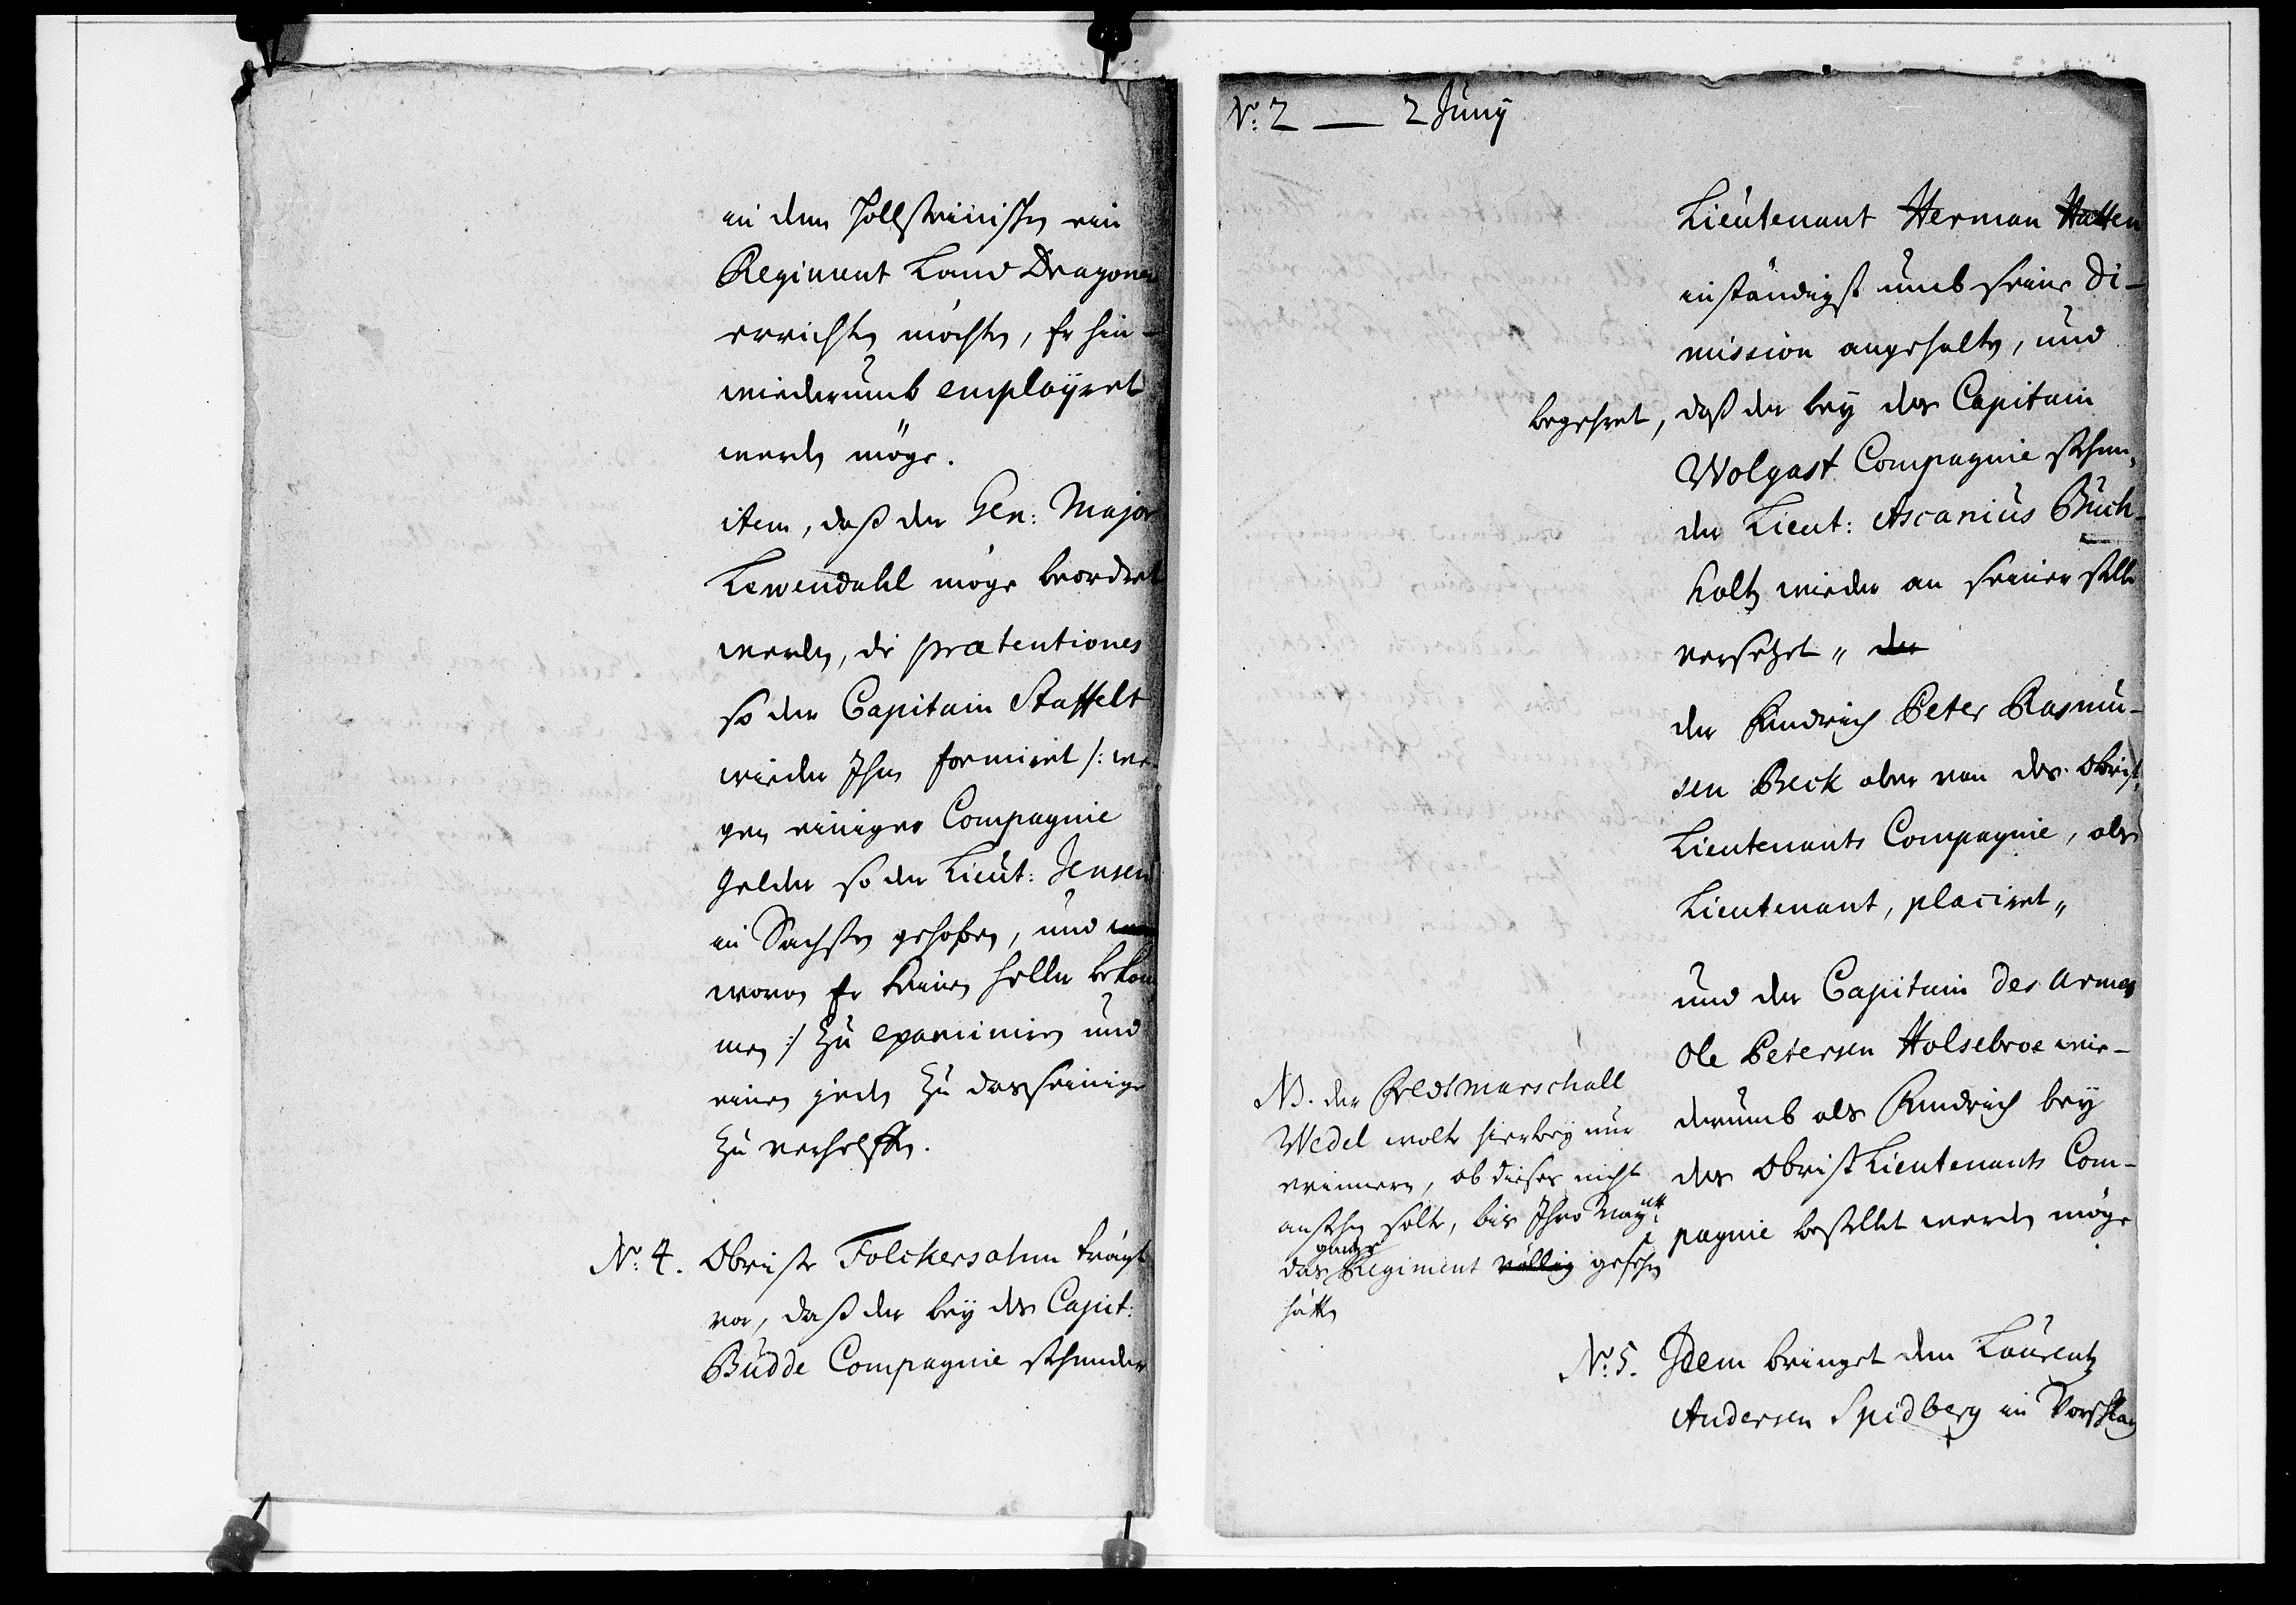 in dem Hollsteinischen ein
Regiment Land Dragoner
errichten möchte, Er hin-
wiederumb employret
werden möge.
item, daß der Gen: Major
Lewendahl möge beordret
werden, die prætentiones
so der Capitain Staffelt
wieder Ihn formiret /: we-
gen einiger Compagnie
gelder so der Lieut: Jensen
in Sachsen gehoben, und
wovon Er keinen heller bekom
men :/ zu examiniren und
einen jeden zu das seinige
zu verhelffen.
No: 4. Obrister Folckersahm trägt
vor, daß der bey des Capit:
Büdde Compagnie stehender
No: 2 — 2 Juny
Lieutenant Herman Hatten
inständigst umb seine Di-
mission angehalten, und
begehret, daß der bey des Capitain
Wolgast Compagnie stehen,
der Lieut: Ascanius Buch-
holtz wieder an seiner stelle
versetzet „ der
der Fendrich Peter Rasmu-
sen Beck aber von des Obrist,
Lieutenants Compagnie, als
Lieutenant, placiret „
und der Capitain des armes
Ole Petersen Holsebroe wie-
derumb als Fendrich bey
des Obrist Lieutenants Com-
pagnie bestellet werden möge
NB. der Feldtmarschall
Wedel wolte hierbey nur
erinnern, ob dieses nicht
anstehen solte, bis Ihro Maytt:
gantze
das Regiment völlig gesehen
hätten
No: 5. Idem bringet den Laurentz
Andersen Spidberg in Vorschlag